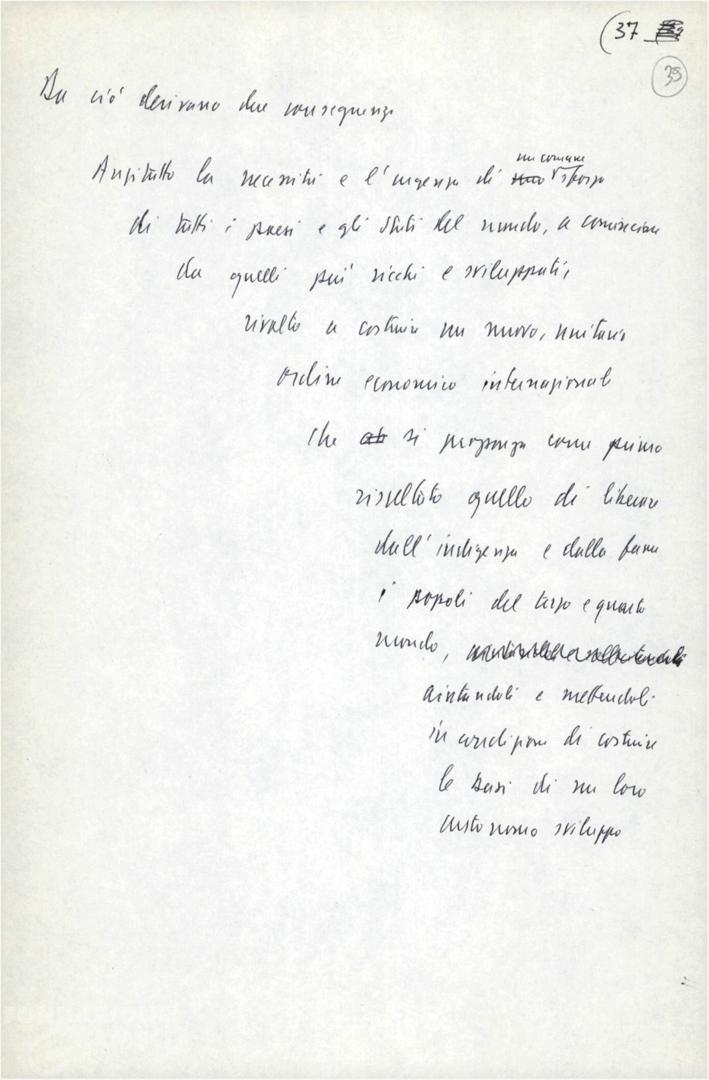 (37
39
Da ciò derivano due conseguenze
Anzitutto la necessità e l'urgenza di uno sforzo
un comune
di tutti i paesi e gli Stati del mondo, a cominciare
da quelli più ricchi e sviluppati,
rivolto a costruire un nuovo, unitario
ordine economico internazionale
che si proponga come primo
risultato quello di liberare
dall'indigenza e dalla fame
i popoli del terzo e quarto
mondo,
aiutandoli e mettendoli
in condizione di costruire
le basi di un loro
autonomo sviluppo